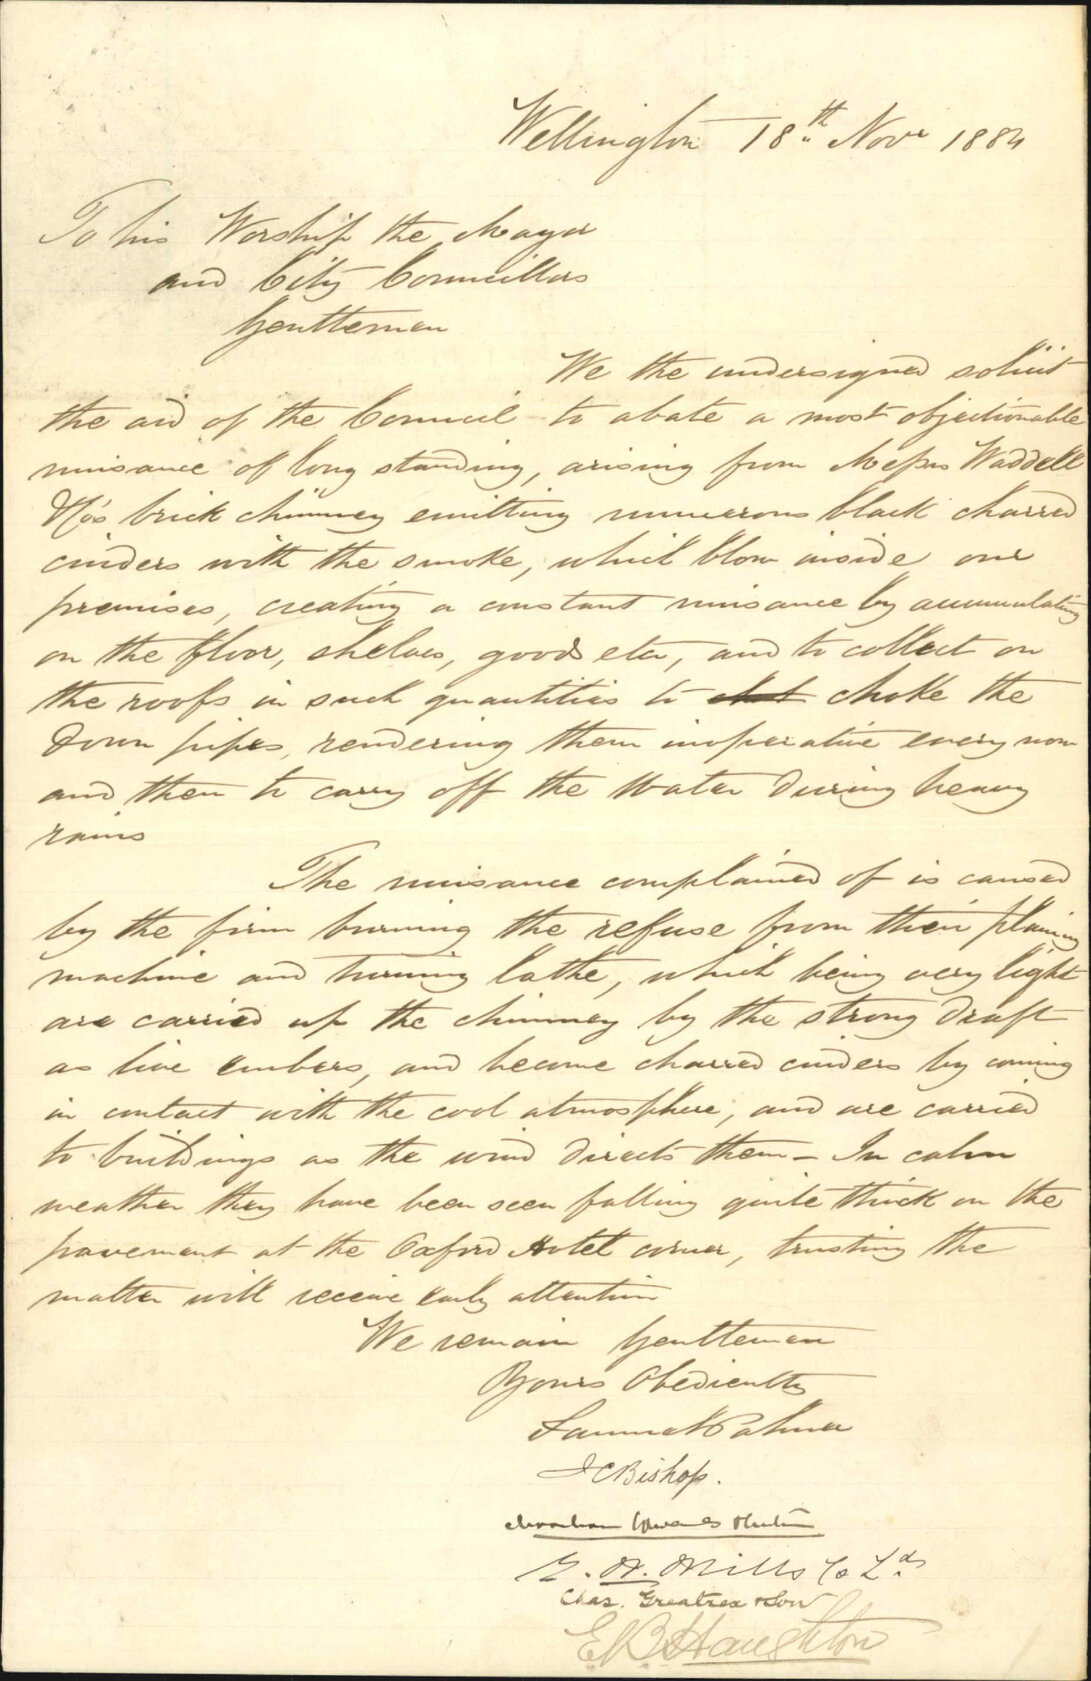 Wellington 18th Novr 1884
To his Worship the Mayor
and City Councillors
Gentlemen
We the undersigned solicit
the aid of the Council to abate a most objectionable
nuisance of long standing, arising from Messrs Waddell
& Co's brick chimney emitting numerous black charred
cinders with the smoke, which blow inside our
premises, creating a constant nuisance by accumulating
on the floor, shelves, goods etc, and to collect on
the roofs in such quantities to choke the
down pipes, rendering them inoperative every now
and then to carry off the water during heavy
rains
The nuisance complained of is caused
by the firm burning the refuse from their plaining
machine and turning lathe, which being very light
are carried up the chimney by the strong draft
as live embers, and become charred cinders by coming
in contact with the cool atmosphere, and are carried
to buildings as the wind directs them – In calm
weather they have been seen falling quite thick on the
pavement at the Oxford Hotel corner, trusting the
matter will receive early attention
We remain Gentlemen
Yours Obediently
Samuel Palmer
J C Bishop.
E. W. Mills & Co Ld
Chas. Greatrex & Son
E B Haughton